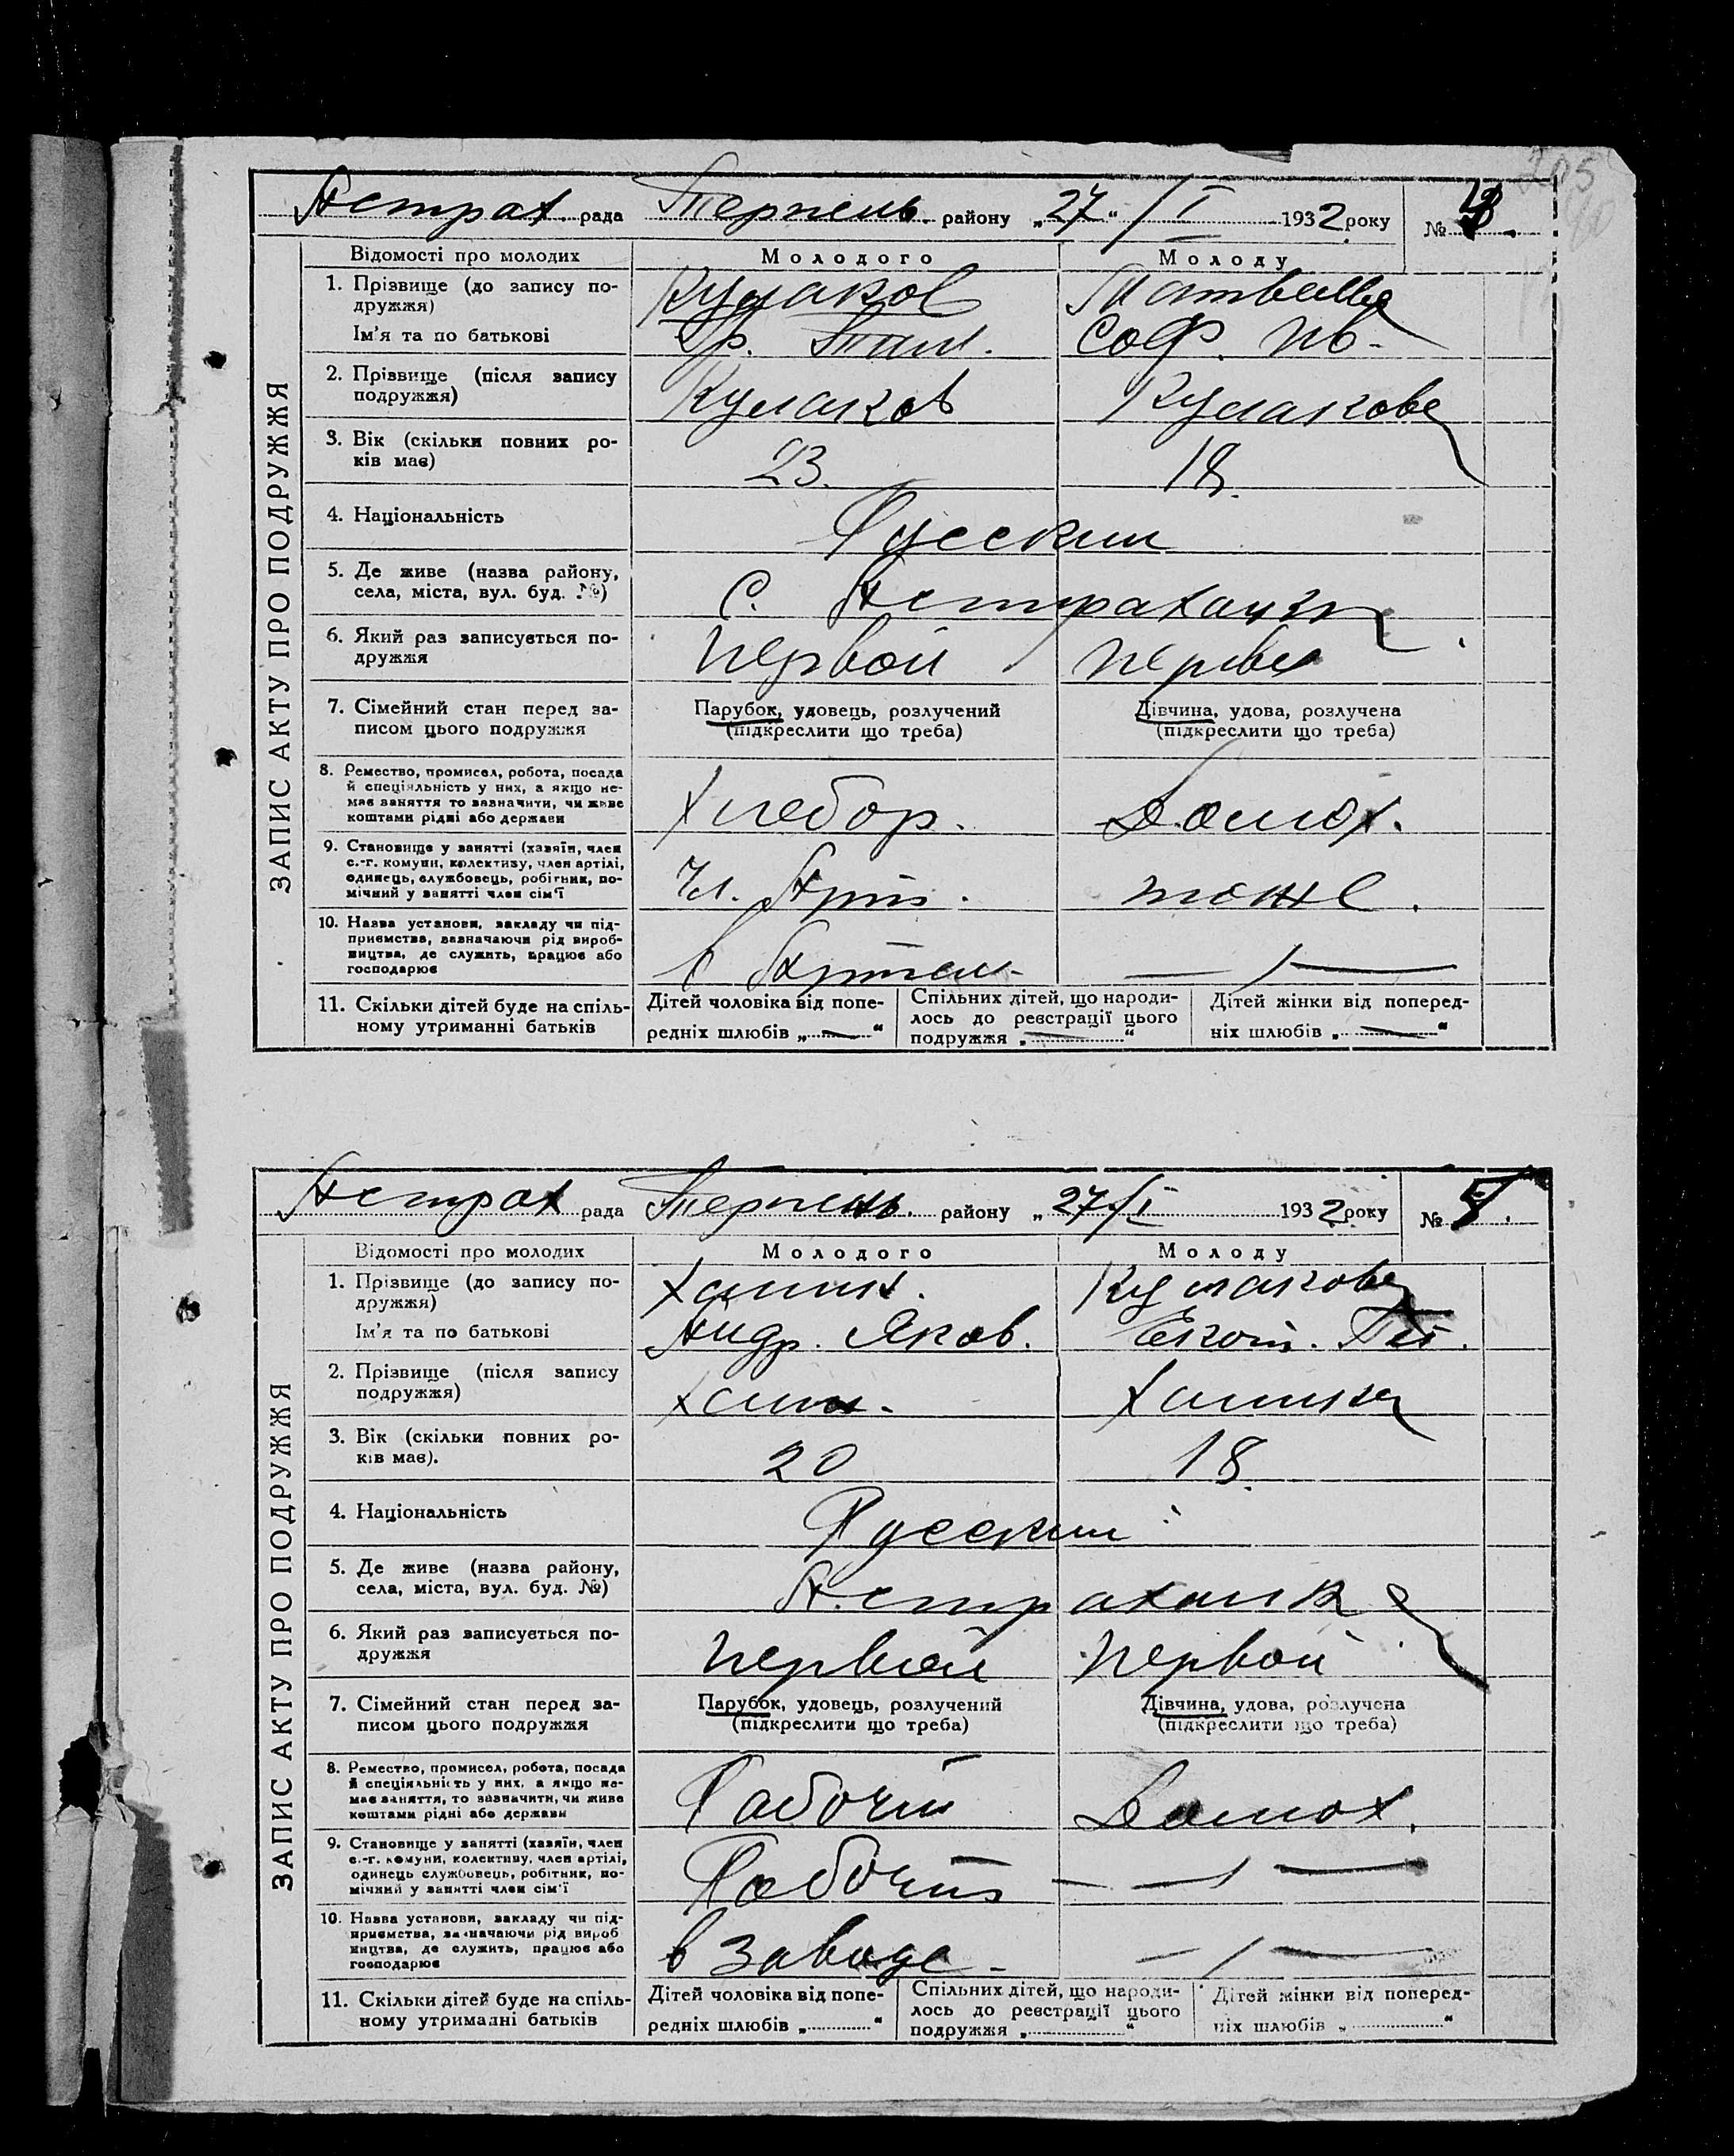 Астрах. рада Терпень. району „27“ / I 1932 року №
ЗАПИС АКТУ ПРО ПОДРУЖЖЯ
Відомості про молодих Молодого Молоду
1. Прізвище (до запису по-
дружжя) Кулаков
Ім'я та по батькові Соф. Ив.
2. Прізвище (після запису
подружжя) Кулаков Кулакова
3. Вік (скільки повних ро-
ків має) 23. 18.
4. Національність Русские
5. Де живе (назва району,
села, міста, вул. буд. №) С. Астраханка
6. Який раз записується по-
дружжя первой первой
7. Сімейний стан перед за-
писом цього подружжя
Парубок, удовець, розлучений
(підкреслити що треба)
Дівчина, удова, розлучена
(підкреслити що треба)
8. Ремество, промисел, робота, посада
й спеціяльність у них, а якщо не-
має заняття то зазначити, чи живе
коштами рідні або держави
Хлебор. Домох.
9. Становище у занятті (хазяїн, член
с.-г. комуни, колективу, член артілі,
одинець, службовець, робітник, по-
мічний у занятті член сім'ї
Чл. Арт. тоже.
10. Назва установи, закладу чи під-
приємства, зазначаючи рід вироб-
ництва, де служить, працює або
господарює
в Артели
11. Скільки дітей буде на спіль-
ному утриманні батьків
Дітей чоловіка від попе-
редніх шлюбів „—“
Спільних дітей, що народи-
лось до реєстрації цього
подружжя „—“
Дітей жінки від поперед-
ніх шлюбів „—“
Астрах рада Терпень. району „27/I 1932 року № 5.
ЗАПИС АКТУ ПРО ПОДРУЖЖЯ
Відомості про молодих Молодого Молоду
1. Прізвище (до запису по-
дружжя) Ханин. Кулакова
Ім'я та по батькові Андр. Яков. Екат.
2. Прізвище (після запису
подружжя) Ханин. Ханина
3. Вік (скільки повних ро-
ків має). 20 18.
4. Національність Русские
5. Де живе (назва району,
села, міста, вул. буд. №) Астраханка
6. Який раз записується по-
дружжя первой первой
7. Сімейний стан перед за-
писом цього подружжя
Парубок, удовець, розлучений
(підкреслити що треба)
Дівчина, удова, розлучена
(підкреслити що треба)
8. Ремество, промисел, робота, посада
й спеціяльність у них, а якщо не-
має заняття, то зазначити, чи живе
коштами рідні або держави
Рабочий Домох.
9. Становище у занятті (хазяїн, член
с.-г. комуни, колективу, член артілі,
одинець службовець, робітник, по-
мічний у занятті член сім'ї
Рабочий
10. Назва установи, закладу чи під-
приємства, зазначаючи рід вироб
ництва, де служить, працює або
господарює
в Заводе
11. Скільки дітей буде на спіль-
ному утриманні батьків
Дітей чоловіка від попе-
редніх шлюбів „ “
Спільних дітей, що народи-
лось до реєстрації цього
подружжя „ “
Дітей жінки від поперед-
ніх шлюбів „ “